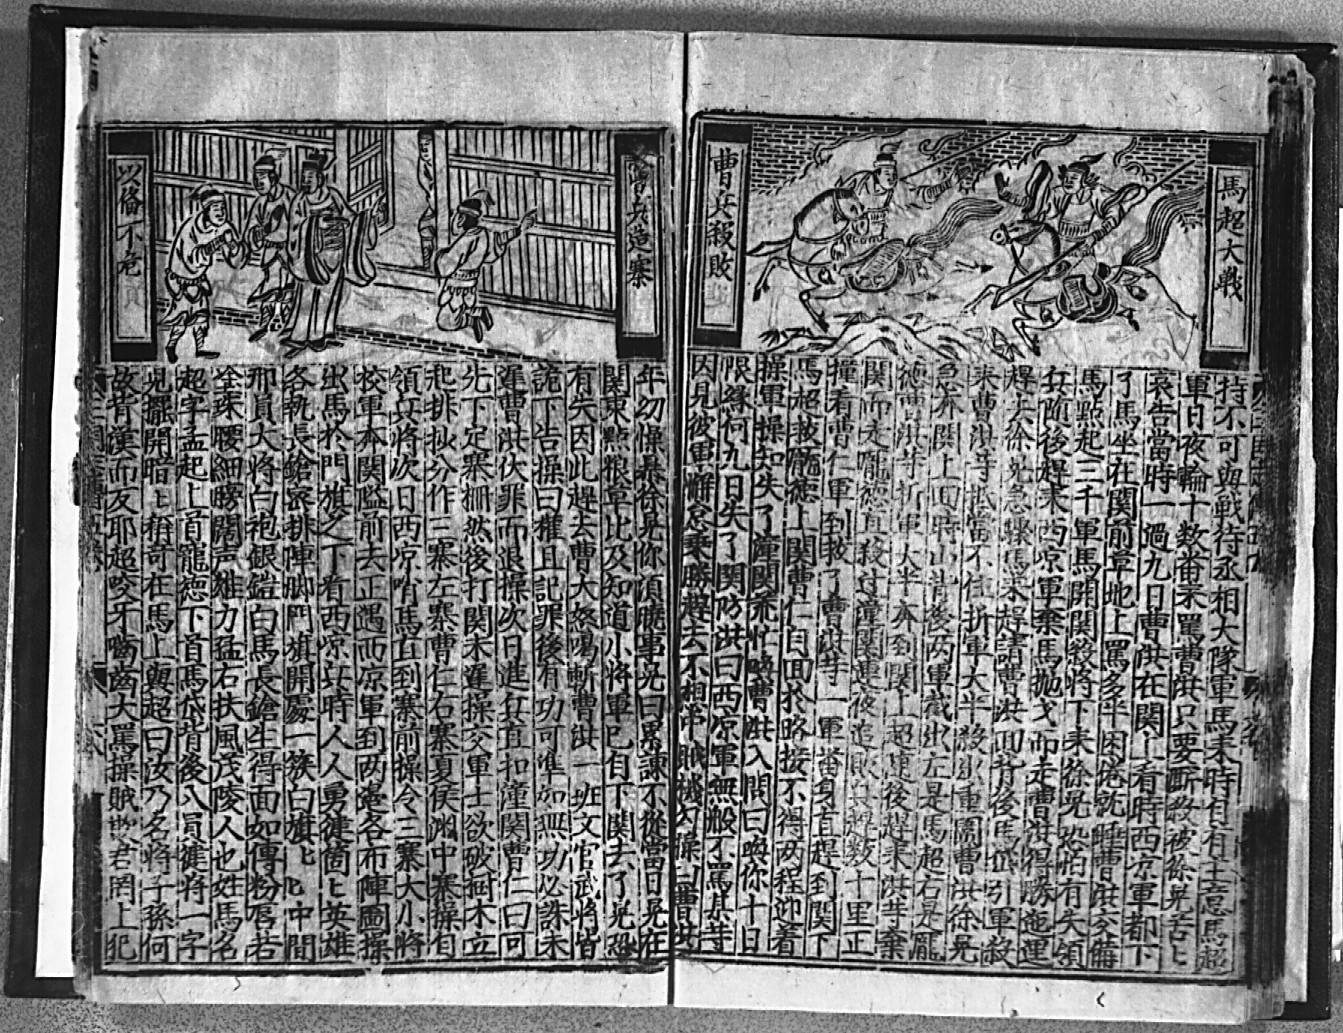 馬超大戰
曹兵殺敗
持不可與戰待丞相大隊軍馬來時自有主意馬超
軍日夜輪十數番來罵曹洪只要厮殺被徐晃苦匕
哀告當時一過九日曹洪在関上看時西凉軍都下
了馬坐在関前草地上罵多半困倦就睡曹洪交備
馬點起三千軍馬開関殺將下來徐晃恐怕有失領
兵随後趕來西凉軍棄馬抛戈而走曹洪得勝迤逞
趕去徐晃急驟馬來趕請曹洪回背後馬岱引軍殺
來曹洪等抵當不住折軍大半殺出重圍曹洪徐晃
急奔関上四時山背後两軍截出左是馬超右是龐
德曹洪等折軍大半奔到関上超連後趕來洪等棄
関而走龐德直殺过潼関連夜追敗兵趕数十里正
撞着曹仁軍到救了曹洪等一軍奮身直趕到関下
馬超救龐德上関曹仁自回於路接不得两程迎着
操軍操知失了潼関飛忙喚曹洪入問曰與你十日
限緣何九日失了関防洪曰西凉軍無般不罵某等
因見彼軍懈怠乗勝趕去不想中賊機
曹兵造寨
以俻不危
年幼慄暴徐晃你須曉事晃曰累諫不從當日晃在
関東點粮草比及知道小將軍已自下関去了晃恐
有失因此趕去曹大怒喝斬曹洪一班文官武將皆
詭下告操曰權且記罪後有功可準如無功必誅未
遲曹洪伏罪而退操次日進兵直扣潼関曹仁曰可
先下定寨柵然後打関未遲操交軍士欲破樹木立
起排拟分作三寨左寨曹仁右寨夏侯渊中寨操自
領兵將次日西凉哨馬直到寨前操令三寨大小將
校軍本関隘前去正遇西凉軍到两邉各布陣圖操
出馬於門旗之下看西凉兵時人人勇健箇匕英雄
各執長鎗密排陣脚門旗開處一簇白旗匕匕中間
那員大將白袍銀鎧白馬長鎗生得面如傳粉唇若
塗硃腰細膀闊声雄力猛右扶風茂陵人也姓馬名
超字孟起上首龐德下首馬岱背後八員健將一字
兒擺開暗匕稱竒在馬上與超曰汝乃名將子孫何
故背漢而反耶超咬牙嚙齒大罵操賊欺君罔上犯